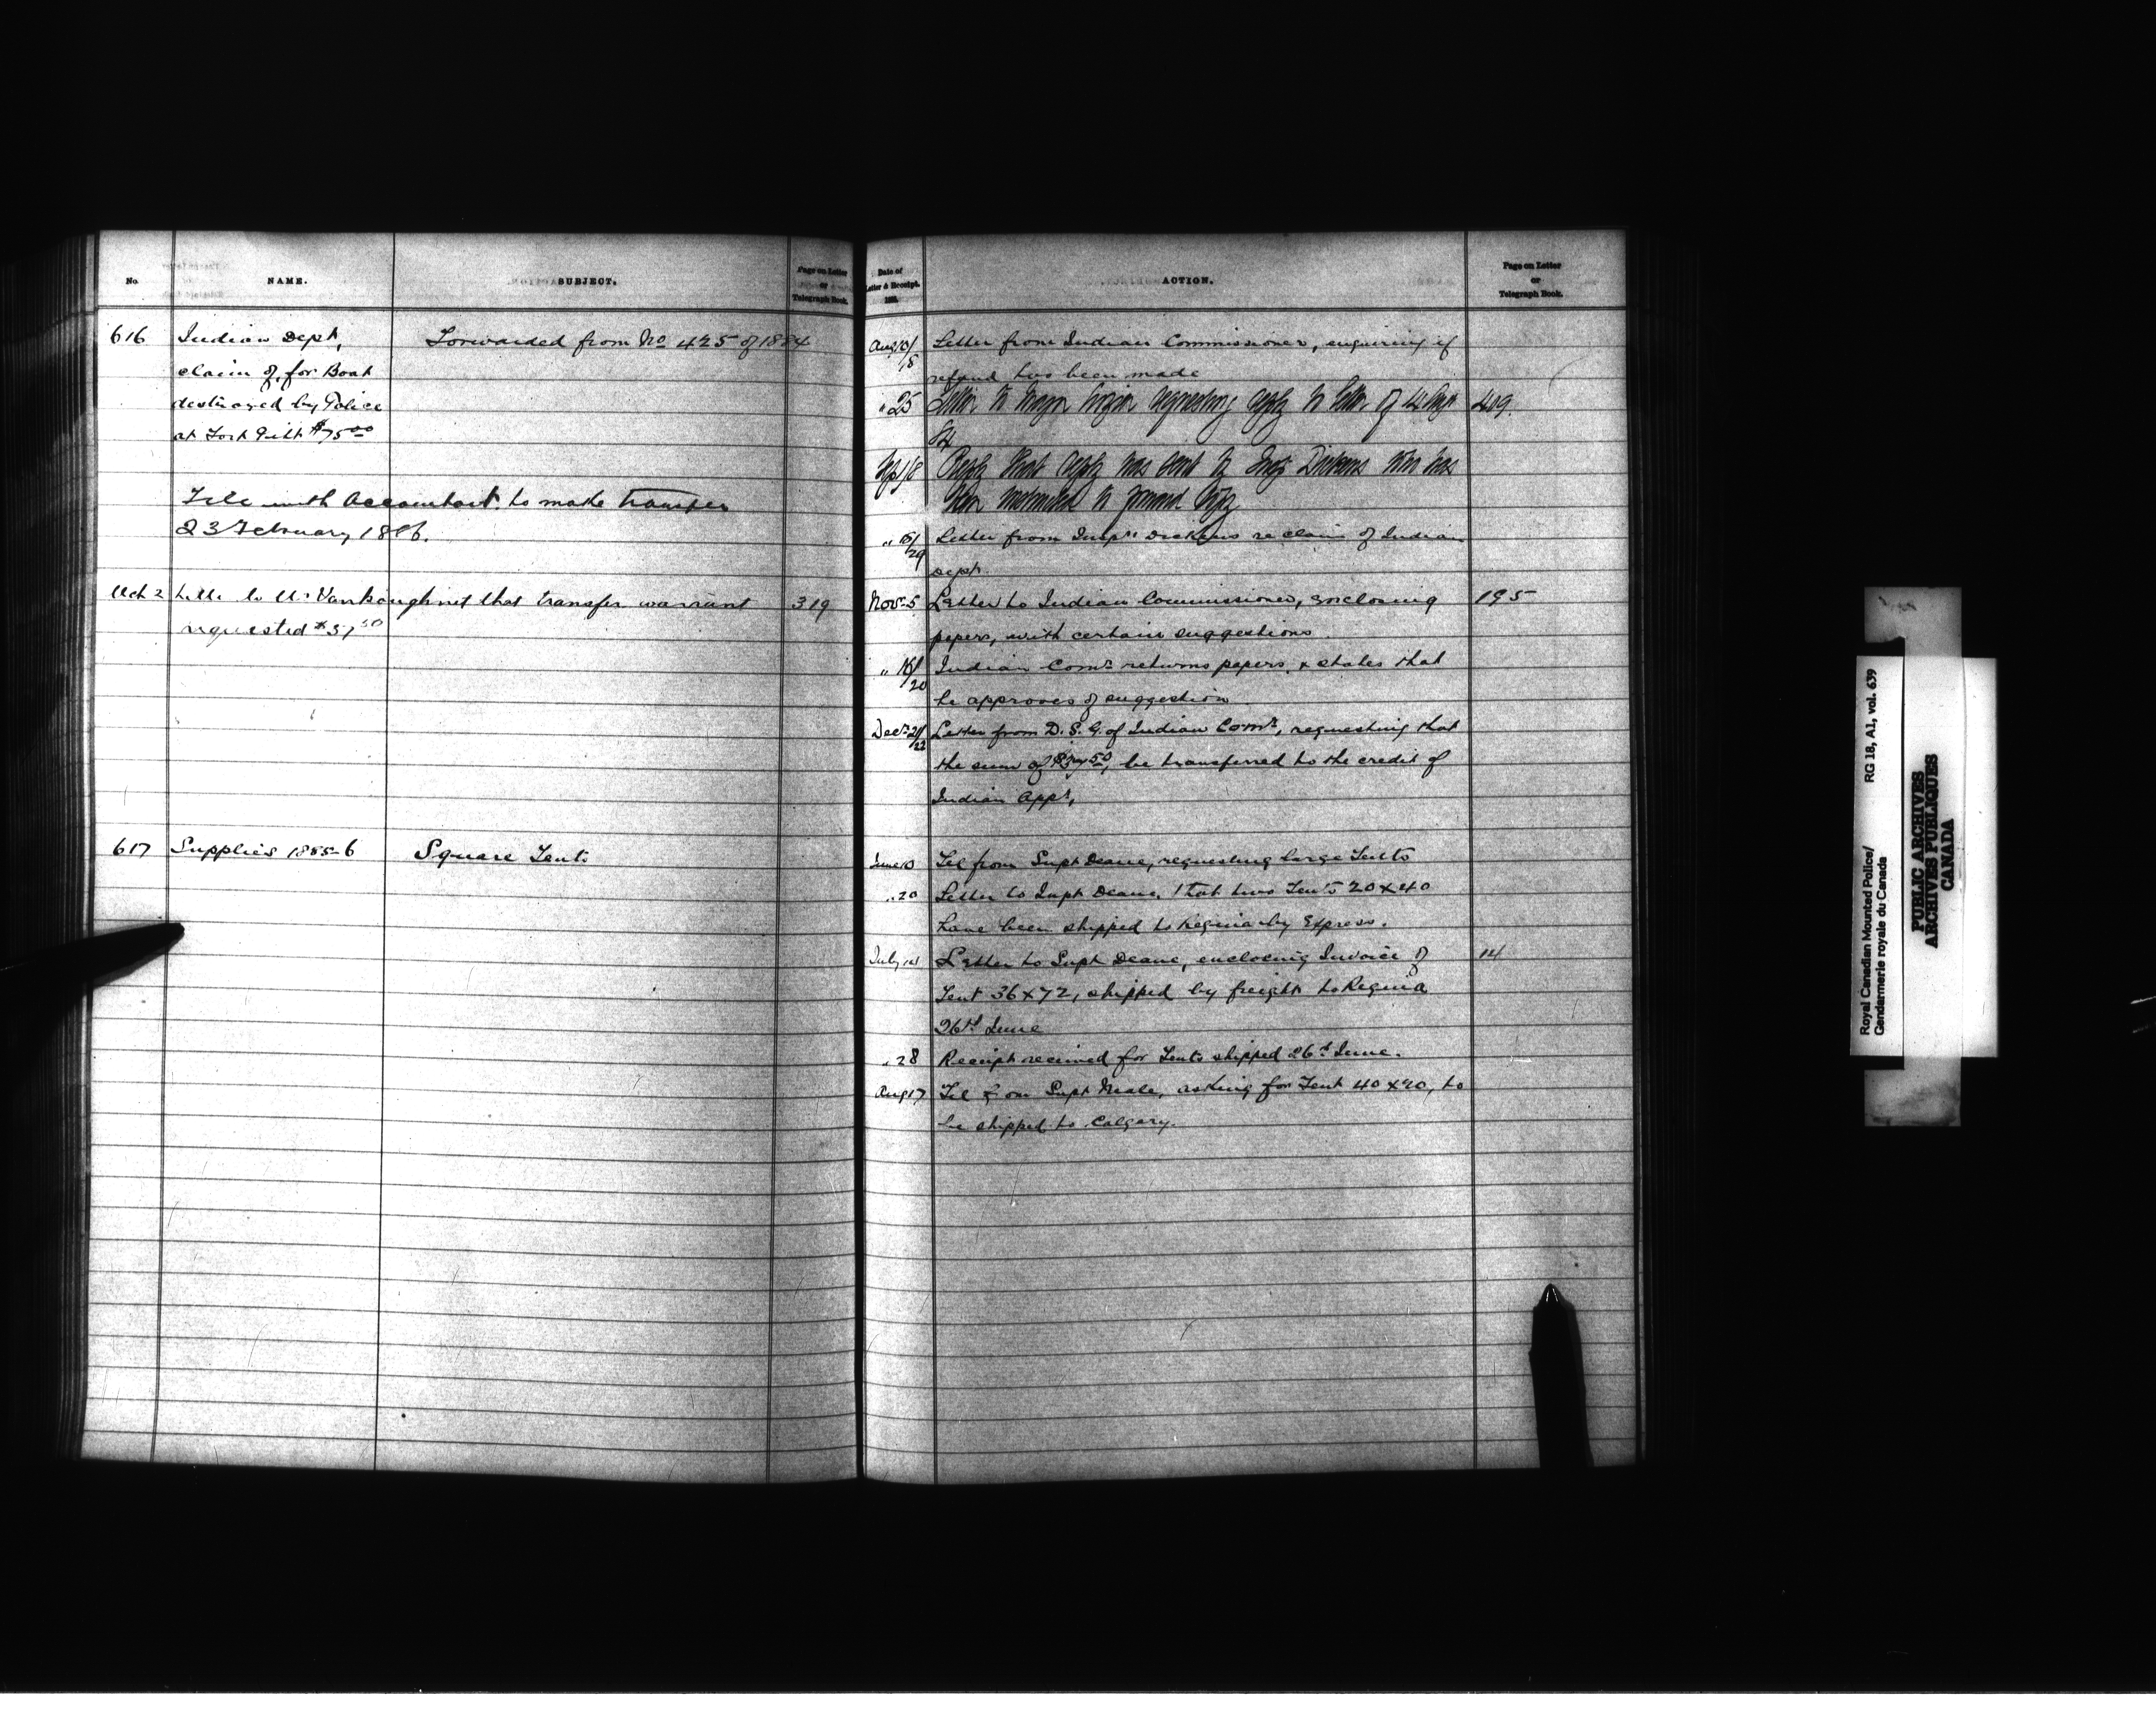 No.
NAME.
SUBJECT.
Page on Letter
or
Telegraph Book.
616
Indian Dept,
claim of, for Boat
destroyed by Police
at Fort Pitt $75.00
Forwarded from No 425 of 1884
File with Accountant to make transfer
23 February 1886.
Mch 2 Letter to Mr Vankoughnet that transfer warrant 319
requested $37.50
617
Supplies 1885-6
Square Tents
Date of
Letter & Receipt.
188
ACTION.
Page on Letter
or
Telegraph Book.
Letter from Indian Commissioner, enquiring if
refund has been made
" 25 Letter to Major requesting reply to letter of 14 Sept 409.
84
Reply that reply was sent by Insp Dickens who has
been instructed to forward
Letter from Inspr Dickens re claim of Indian
Dept.
Nov 5 Letter to Indian Commissioner, enclosing 195
papers, with certain suggestions.
Indian Comr returns papers & states that
he approves of suggestion
Decr 21/22 Letter from D. S. G. of Indian Comr, requesting that
the sum of $37.50, be transferred to the credit of
Indian Appn,
June 10 Tel from Supt Deane, requesting large Tents
" 20 Letter to Supt Deane, that two Tents 20 x 40
have been shipped to Regina by Express.
July 14 Letter to Supt Deane, enclosing Invoice of 14
Tent 36 x 72, shipped by freight to Regina
26th June
" 28 Receipt received for Tents shipped 26th June.
Aug 17 Tel from Supt Neale, asking for Tent 40 x 20, to
be shipped to Calgary.
Royal Canadian Mounted Police/ RG 18, A1, vol. 639
Gendarmerie royale du Canada
PUBLIC ARCHIVES
ARCHIVES PUBLIQUES
CANADA